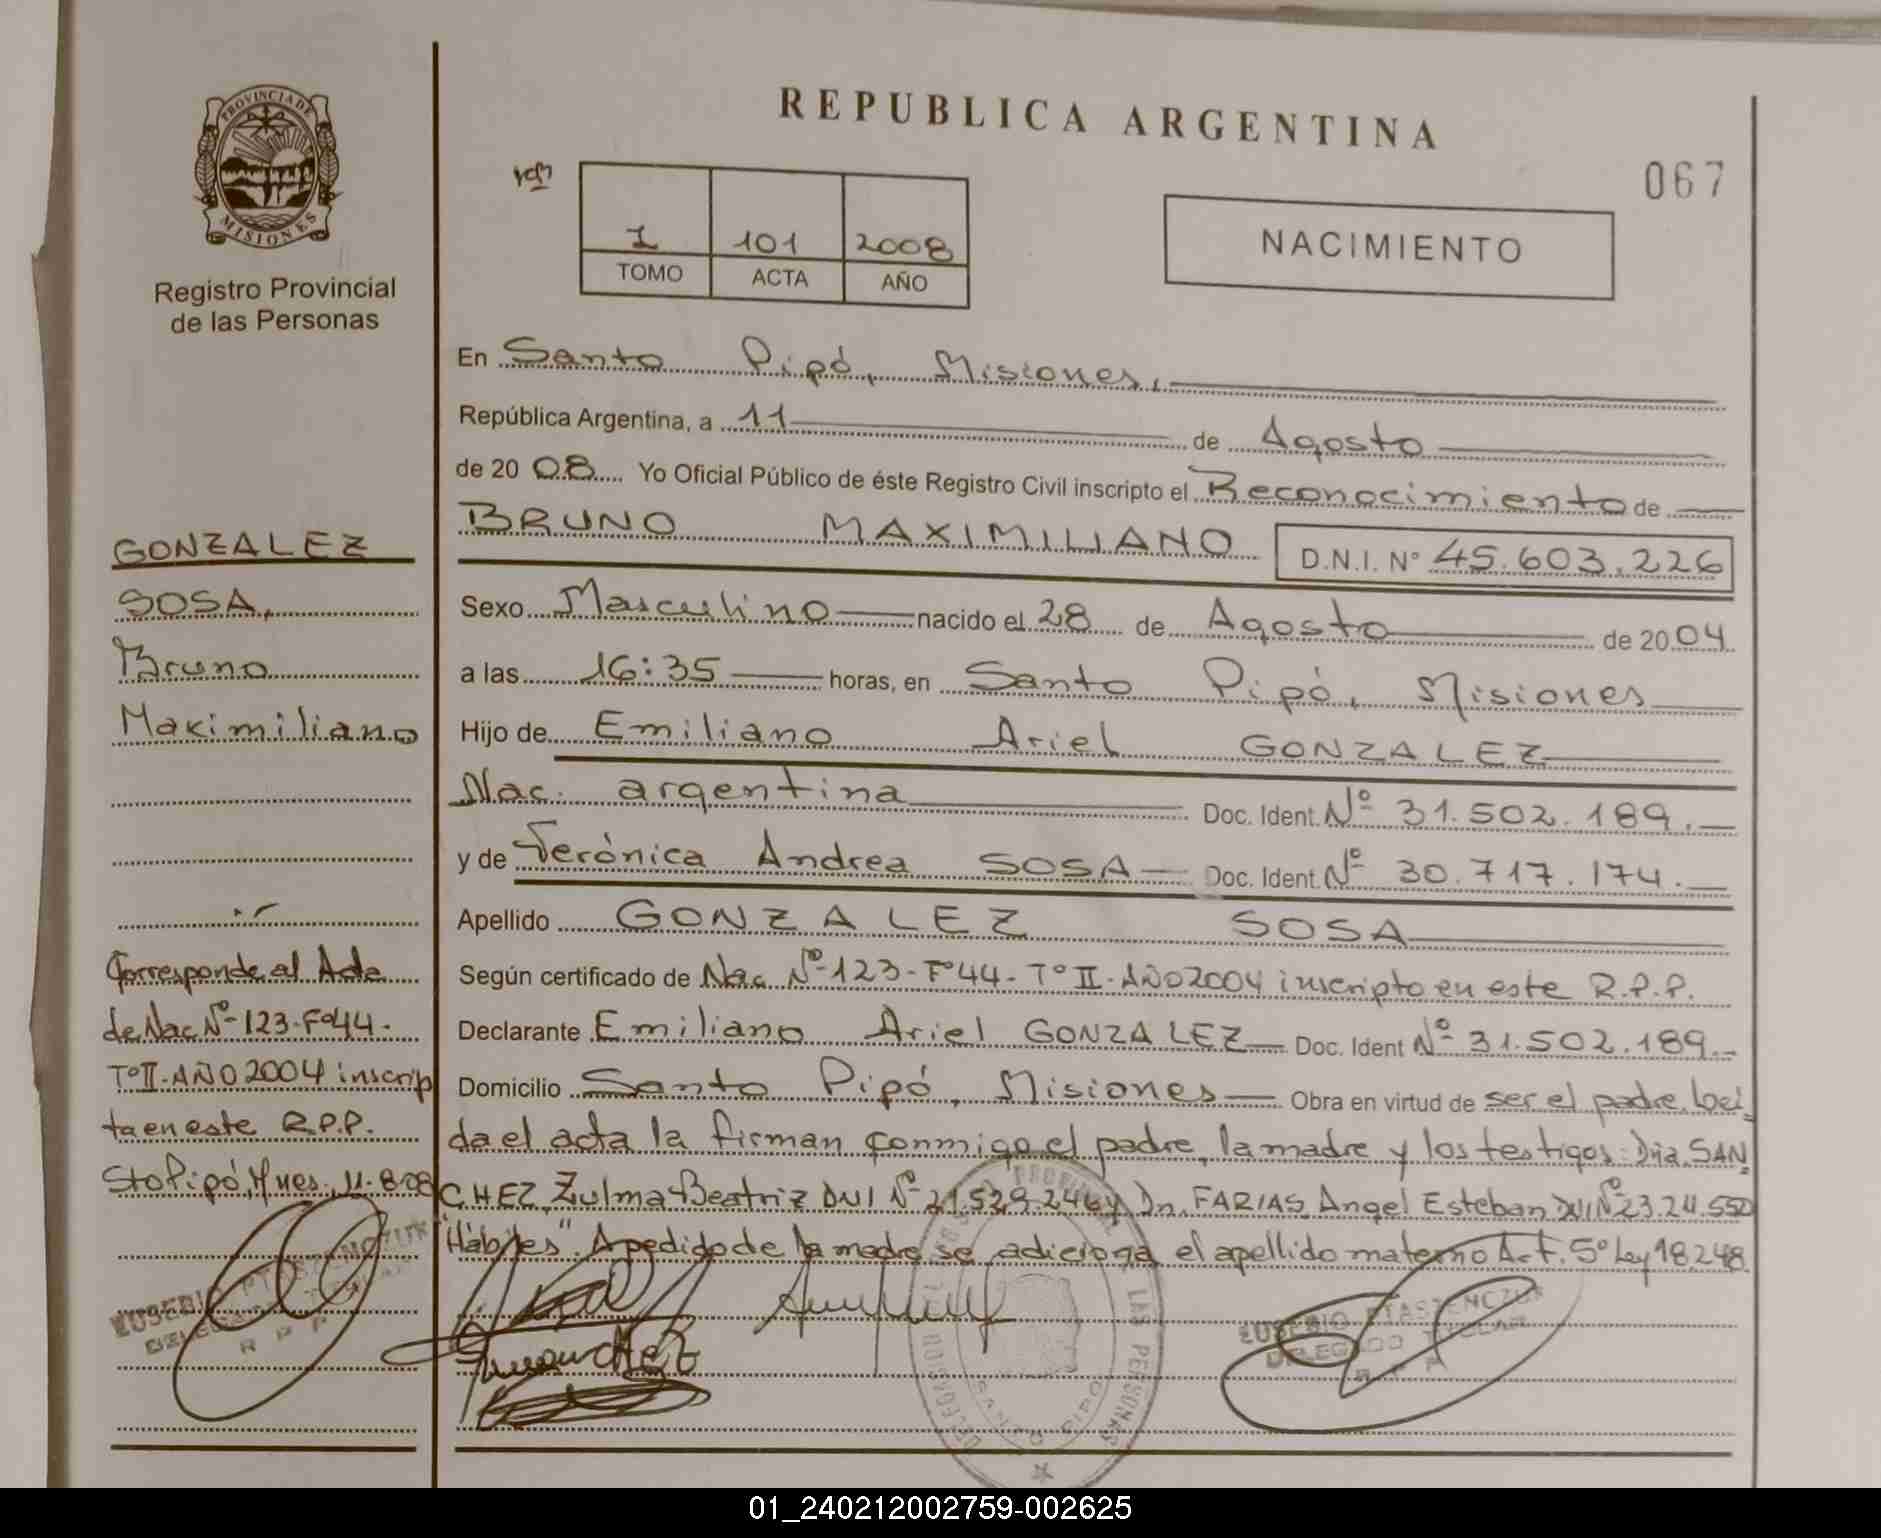 REPUBLICA ARGENTINA
067
PROVINCIA DE
MISIONES
Registro Provincial
de las Personas
1 101 2008
TOMO ACTA AÑO
NACIMIENTO
GONZALEZ
SOSA,
Bruno
Maximiliano
Corresponde al Acta
de Nac Nº 123-Fº44-
TºII-AÑO 2004 inscrip
ta en este R.P.P.
Sto Pipó, Mnes., 11-8-08
EUSEBIO PTASZENCZUK
DELEGADO TITULAR
R P P
En Santo Pipó, Misiones,
República Argentina, a 11 de Agosto
de 20 08 Yo Oficial Público de éste Registro Civil inscripto el Reconocimiento de
BRUNO MAXIMILIANO D.N.I. Nº 45.603.226
Sexo Masculino nacido el 28 de Agosto de 20 04
a las 16:35 horas, en Santo Pipó, Misiones
Hijo de Emiliano Ariel GONZALEZ
Nac. argentina Doc. Ident. Nº 31.502.189.
y de Verónica Andrea SOSA Doc. Ident. Nº 30.717.174.
Apellido GONZALEZ SOSA
Según certificado de Nac Nº-123-Fº44-TºII-AÑO 2004 inscripto en este R.P.P.
Declarante Emiliano Ariel GONZALEZ Doc. Ident Nº 31.502.189.
Domicilio Santo Pipó, Misiones Obra en virtud de ser el padre. Leí
da el acta la firman conmigo el padre, la madre y los testigos: Dña. SAN
CHEZ, Zulma Beatriz DNI Nº 21.529.246 y Dn. FARIAS, Angel Esteban DNI Nº 23.24.550
"Hábiles". A pedido de la madre se adiciona el apellido materno Art. 5º Ley 18.248.
EUSEBIO PTASZENCZUK
DELEGADO TITULAR
R P P
LAS PERSONAS
SANTO PIPO
01_240212002759-002625